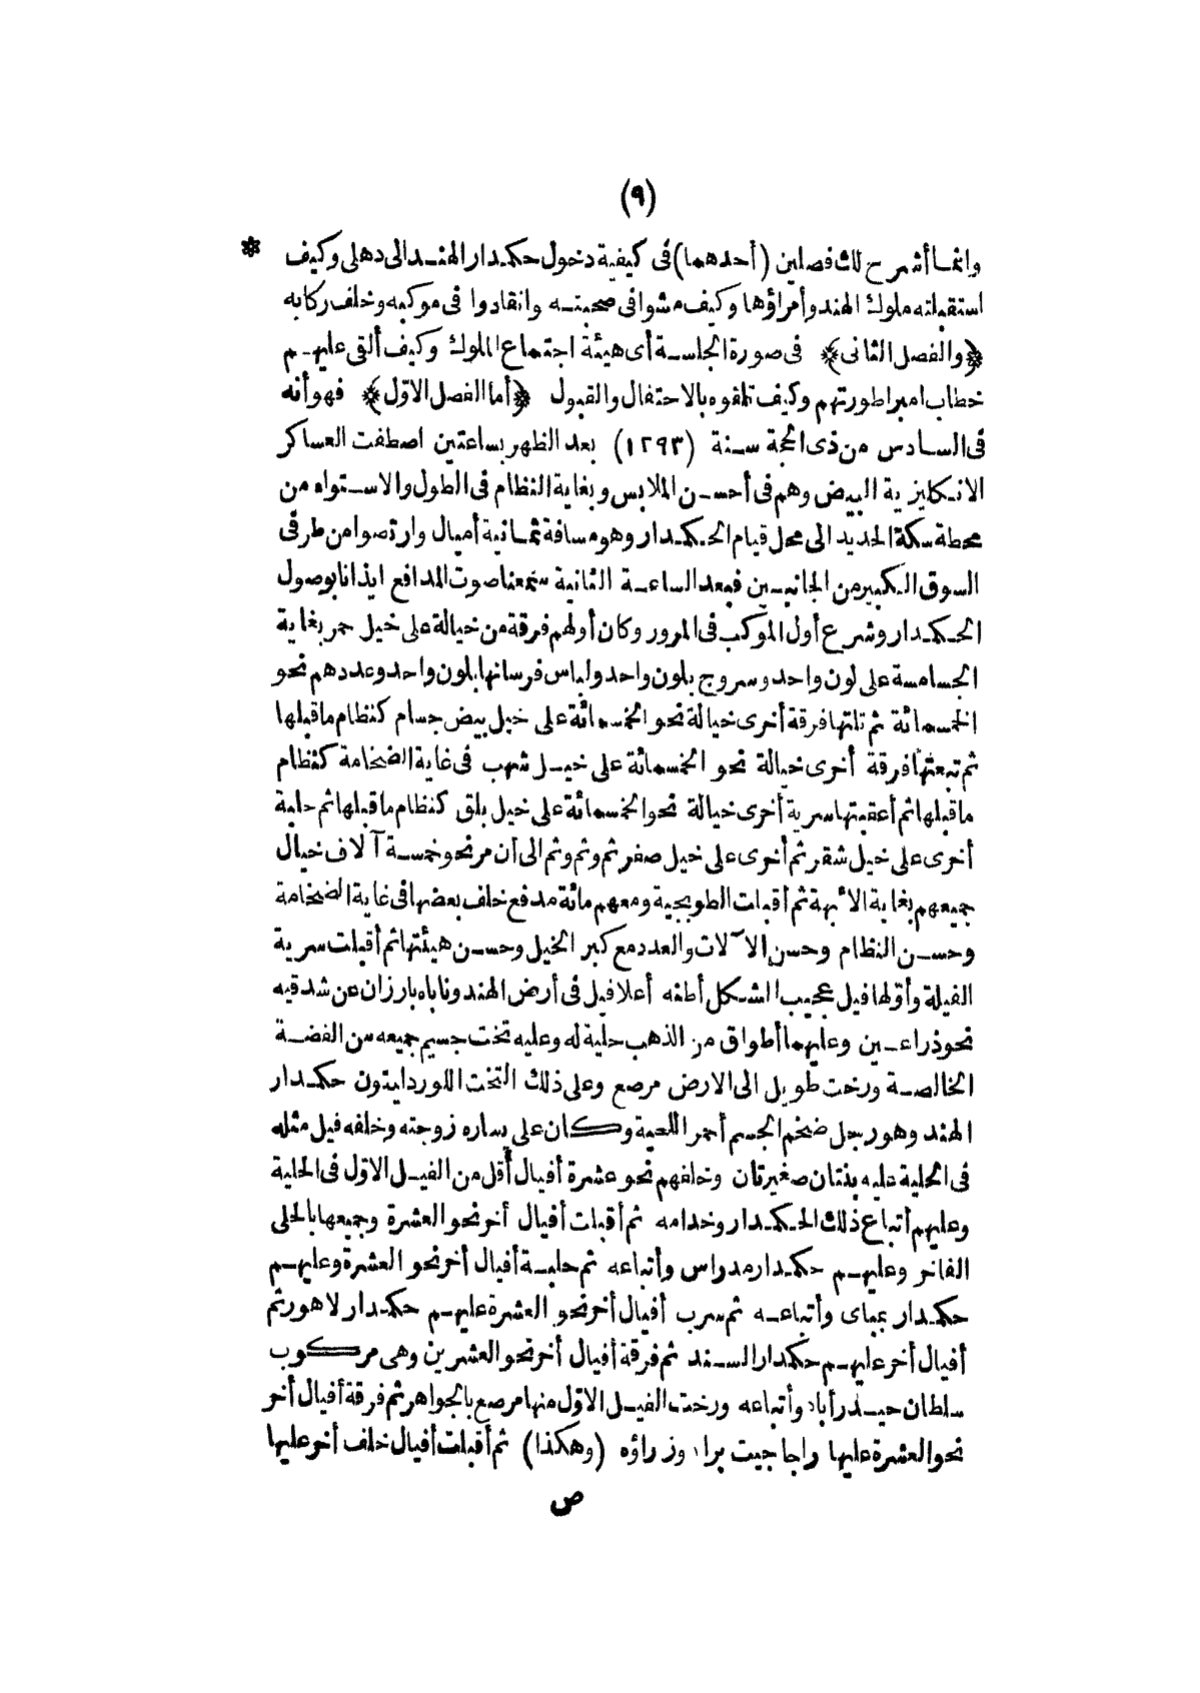 (٩)
وانما أشرح لك فصلين (أحدهما) في كيفية دخول حكمدار الهند الى دهلى وكيف *
استقبلته ملوك الهند وأمراؤها وكيف مشوا في صحبته وانقادوا في موكبه وخلف ركابه
﴿والفصل الثانى﴾ فى صورة الجلسة أى هيئة اجتماع الملوك وكيف ألقى عليهم
خطاب امبراطورتهم وكيف تلقوه بالاحتفال والقبول ﴿أما الفصل الاول﴾ فهو أنه
فى السادس من ذى الحجة سنة (١٢٩٣) بعد الظهر بساعتين اصطفت العساكر
الانكليزية البيض وهم فى أحسن الملابس وبغاية النظام فى الطول والاستواء من
محطة سكة الحديد الى محل قيام الحكمدار وهو مسافة ثمانية أميال وارتصوا من طرفى
السوق الكبير من الجانبين فبعد الساعة الثانية سمعنا صوت المدافع ايذانا بوصول
الحكمدار وشرع أول الموكب فى المرور وكان أولهم فرقة من خيالة على خيل حمر بغاية
الجسامسة على لون واحد وسروج بلون واحد ولباس فرسانها بلون واحد وعددهم نحو
الخمسمائة ثم تلتها فرقة أخرى خيالة نحو الخمسمائة على خيل بيض جسام كنظام ما قبلها
ثم تبعتها فرقة أخرى خيالة نحو الخمسمائة على خيل شهب فى غاية الضخامة كنظام
ما قبلها ثم أعقبتها سرية أخرى خيالة نحو الخمسمائة على خيل بلق كنظام ما قبلها ثم حلبة
أخرى على خيل شقر ثم أخرى على خيل صفر ثم وثم وثم الى أن مر نحو خمسة آلاف خيال
جميعهم بغاية الابهة ثم أقبلت الطوبجية ومعهم مائة مدفع خلف بعضها فى غاية الضخامة
وحسن النظام وحسن الآلات والعدد مع كبر الخيل وحسن هيئتها ثم أقبلت سرية
الفيلة وأولها فيل عجيب الشكل أظنه أعلا فيل فى أرض الهند وناباه بارزان عن شدقيه
نحو ذراعين وعليهما أطواق من الذهب حلية له وعليه تخت جسيم جميعه من الفضة
الخالصة ورخت طويل الى الارض مرصع وعلى ذلك التخت اللورد ليتون حكمدار
الهند وهو رجل ضخم الجسم أحمر اللحية وكان على يساره زوجته وخلفه فيل مثله
فى الحلية عليه بنتان صغيرتان وخلفهم نحو عشرة أفيال أقل من الفيل الاول فى الحلية
وعليهم أتباع ذلك الحكمدار وخدامه ثم أقبلت أفيال أخر نحو العشرة وجميعها بالحلى
الفاخر وعليهم حكمدار مدراس وأتباعه ثم حلبة أفيال أخر نحو العشرة وعليهم
حكمدار بمباى وأتباعه ثم سرب أفيال أخر نحو العشرة عليهم حكمدار لاهور ثم
أفيال أخر عليهم حكمدار السند ثم فرقة أفيال أخر نحو العشرين وهى مركوب
سلطان حيدرأباد وأتباعه ورخت الفيل الاول منها مرصع بالجواهر ثم فرقة أفيال أخر
نحو العشرة عليها راجا جيت برا وزراؤه (وهكذا) ثم أقبلت أفيال خلف أخر عليها
ص